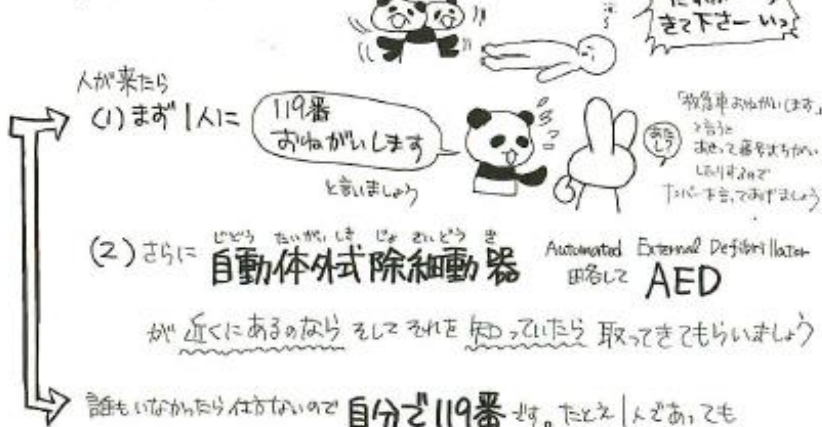 きて下さーいっ
人が来たら
(1)まず1人に
119番
おねがいします
と言いましょう
あたし?
「救急車おねがいします」
と言うと
あせって番号まちがい
したりするので
ナンバーを言ってあげましょう
(2)さらに
じどう たいがい しき じょ さいどう き
自動体外式除細動器
Automated External Defibrillator
略して AED
が 近くにあるのなら そして それを 知っていたら 取ってきてもらいましょう
誰もいなかったら仕方ないので 自分で119番です。たとえ1人であっても